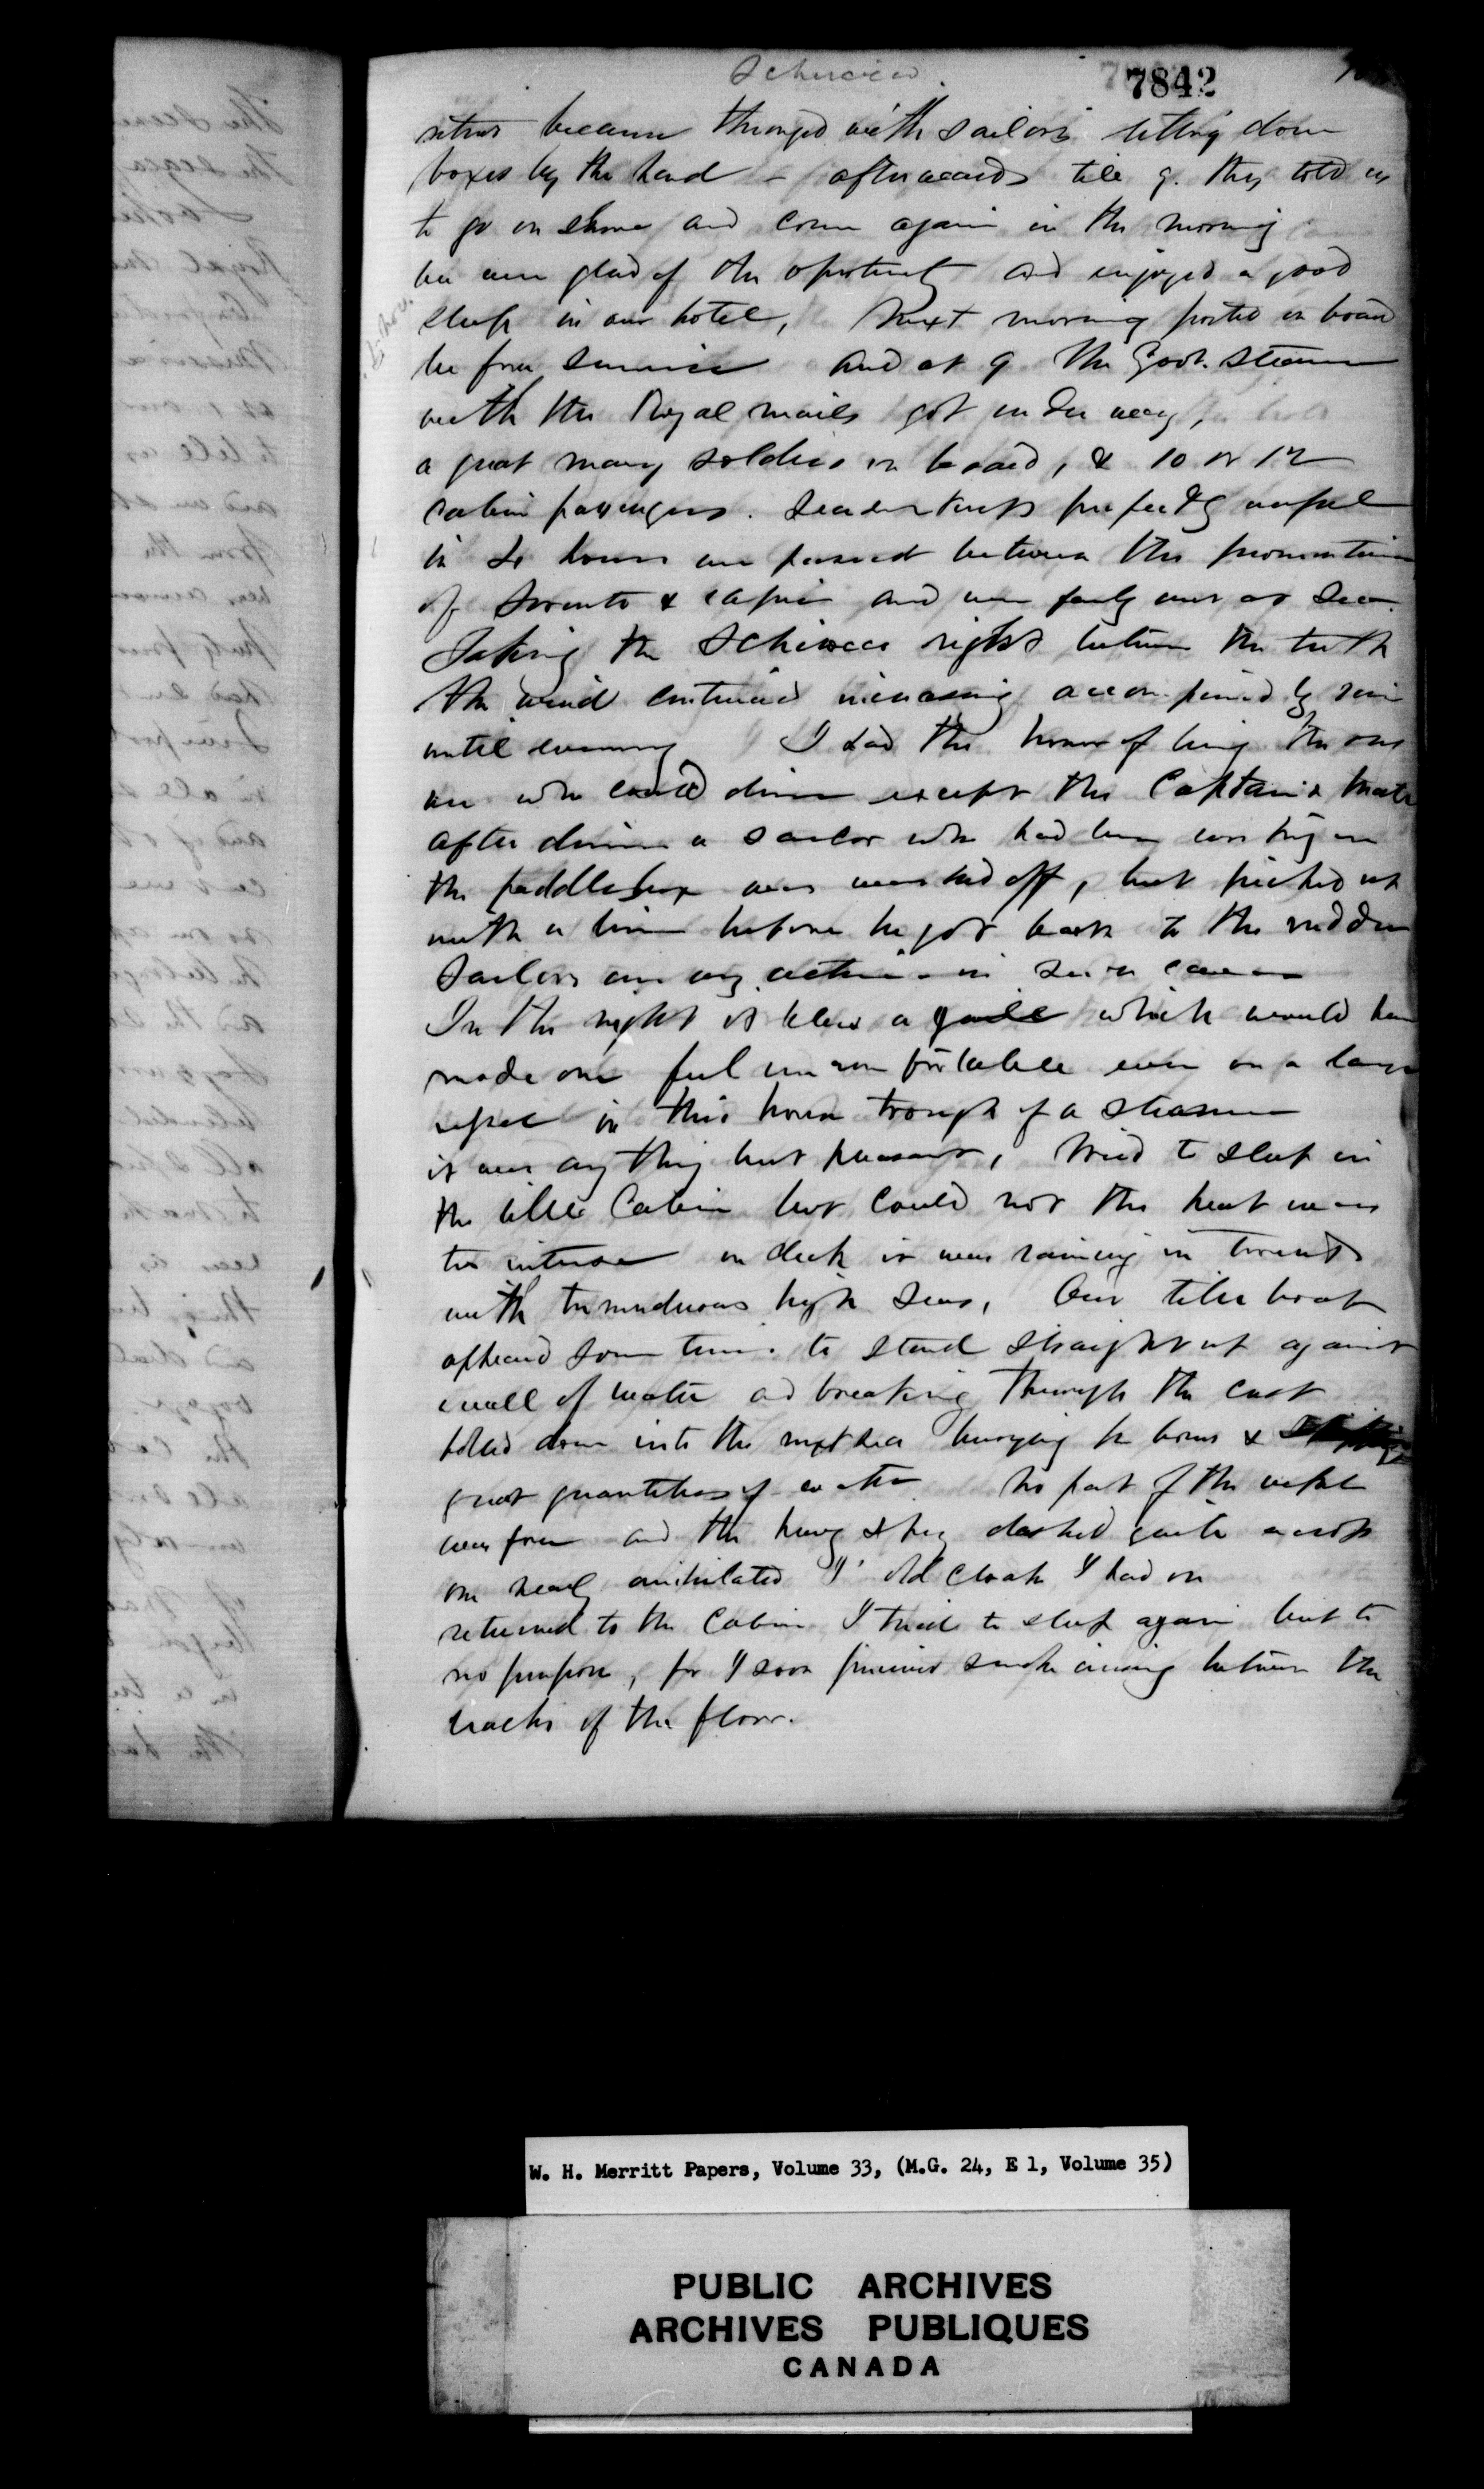 Schirocco
7842
became thronged with sailors letting down
boxes by the hand - afterwards till 9. they told us
to go on shore and come again in the morning
we were glad of the oportunity and enjoyed a good
sleep in our hotel, Next morning posted on board
before sunrise and at 9 the Govt. steamer
with the Royal mails got under way,
a great many soldiers on board, & 10 or 12
cabin passengers. perfectly awful
in hours we passed between the promontories
of Sorento & Capri and were fairly out at Sea.
Taking the Schirocco right between the teeth
the wind continued increasing accompanied by rain
until evening I had the honor of being the only
one who could dine except the Captain & mate
after dinner a sailor who had been working on
the paddlebox was washed off, but picked up
with a line before he got back to the rudder
Sailors are very active in such cases
In the night it blew a gale which would have
made one feel uncomfortable even on a large
vessel in this horse trough of a steamer
it was any thing but pleasant, tried to sleep in
the little Cabin but could not the heat was
too intense on deck it was raining in torrents
with tremendous high seas, Our little boat
appeard some times to stand straight up against
a wall of water and breaking through the crest
down into the next sea burying her bows &
great quantities of water no part of the vessel
was free and the heavy spray dashed quite across
one nearly anihilated old cloak I had on
returned to the Cabin I tried to sleep again but to
no purpose, for I soon perceived smoke coming between the
cracks of the floor.
W. H. Merritt Papers, Volume 33, (M.G. 24, E 1, Volume 35)
PUBLIC ARCHIVES
ARCHIVES PUBLIQUES
CANADA